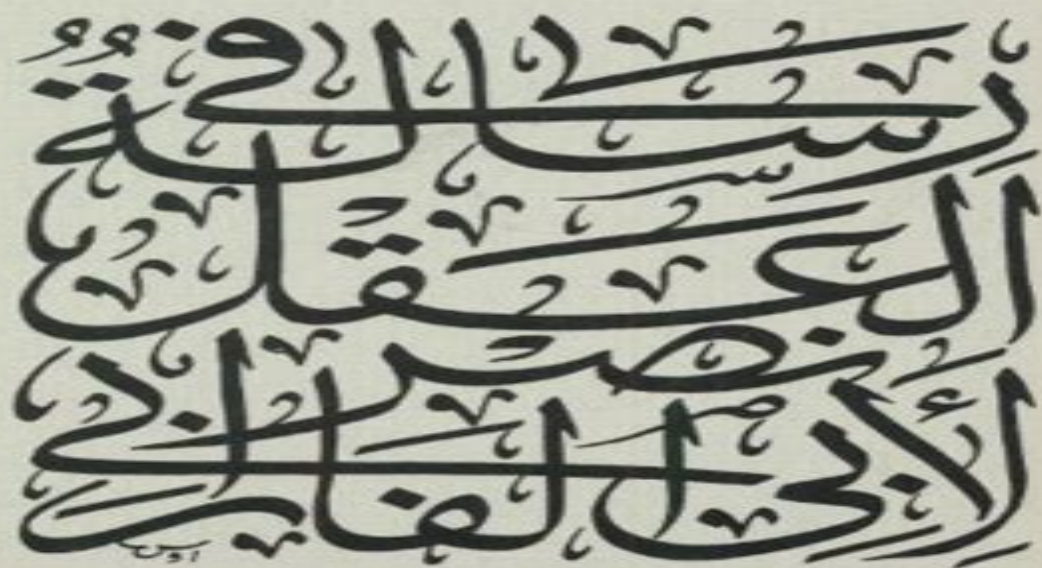 رسالة في
العقل
لأبي نصر الفارابي